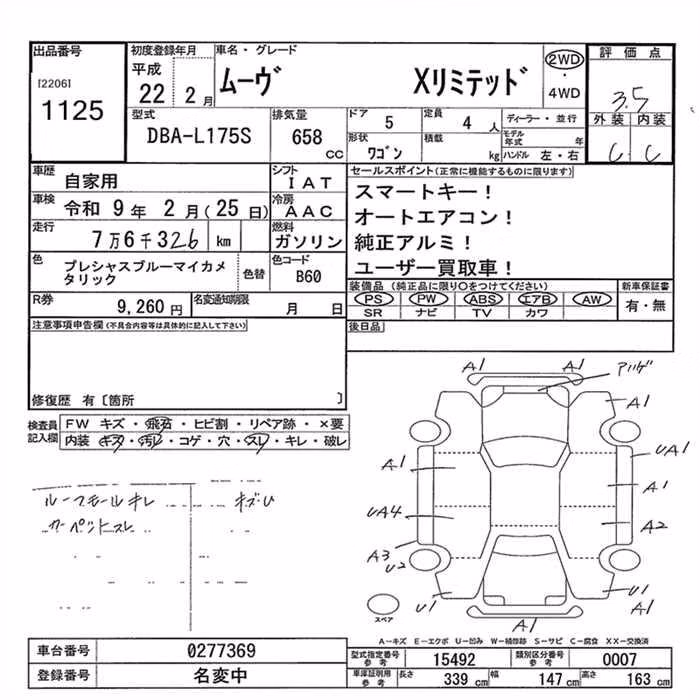 出品番号
[2206]
1125
初度登録年月
平成
22 2月
車名・グレード
ムーヴ Xリミテッド
2WD
・
4WD
評価点
3.5
外装 内装
C C
型式
DBA-L175S
排気量
658
cc
ドア 5
定員 4 人
形状 ワゴン
積載 kg
ディーラー・並行
モデル年式 年
ハンドル 左・右
車歴 自家用
シフト IAT
車検 令和 9年 2月(25日)
冷房 AAC
走行 7万6千326 km
燃料 ガソリン
色 プレシャスブルーマイカメタリック
色替
色コード B60
R券 9,260円
名変通知期限 月 日
セールスポイント(正常に機能するものに限ります)
スマートキー!
オートエアコン!
純正アルミ!
ユーザー買取車!
装備品(純正品に限り○をつけてください)
PS PW ABS エアB AW
SR ナビ TV カワ
新車保証書
有・無
後日品
注意事項申告欄(不具合内容等は具体的に記入して下さい)
修復歴 有〔箇所 〕
検査員記入欄
FW キズ・飛石・ヒビ割・リペア跡・×要
内装 キズ・汚レ・コゲ・穴・スレ・キレ・破レ
ルーフモールキレ
カーペットスレ
キズ・U
A1
A1
A1
A1
UA1
A1
UA4
A2
A3
U2
U1
U1
A1
A1
スペア
A-キズ E-エクボ U-凹み W-補修跡 S-サビ C-腐食 XX-交換済
車台番号 0277369
登録番号 名変中
型式指定番号参考 15492
類別区分番号参考 0007
車庫証明用参考 長さ 339cm 幅 147cm 高さ 163cm